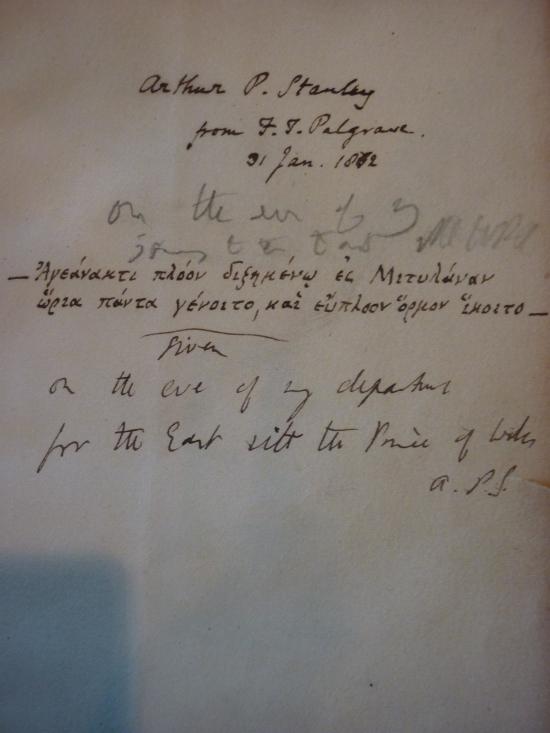 Arthur P. Stanley
from F. T. Palgrave.
31 Jan. 1862
on the eve of my
— Ἀγεάνακτι πλόον διζημένῳ ἐς Μιτυλάναν
ὥρια πάντα γένοιτο, καὶ εὔπλοον ὅρμον ἵκοιτο —
Given
on the eve of my departure
for the East with the Prince of Wales
A. P. S.